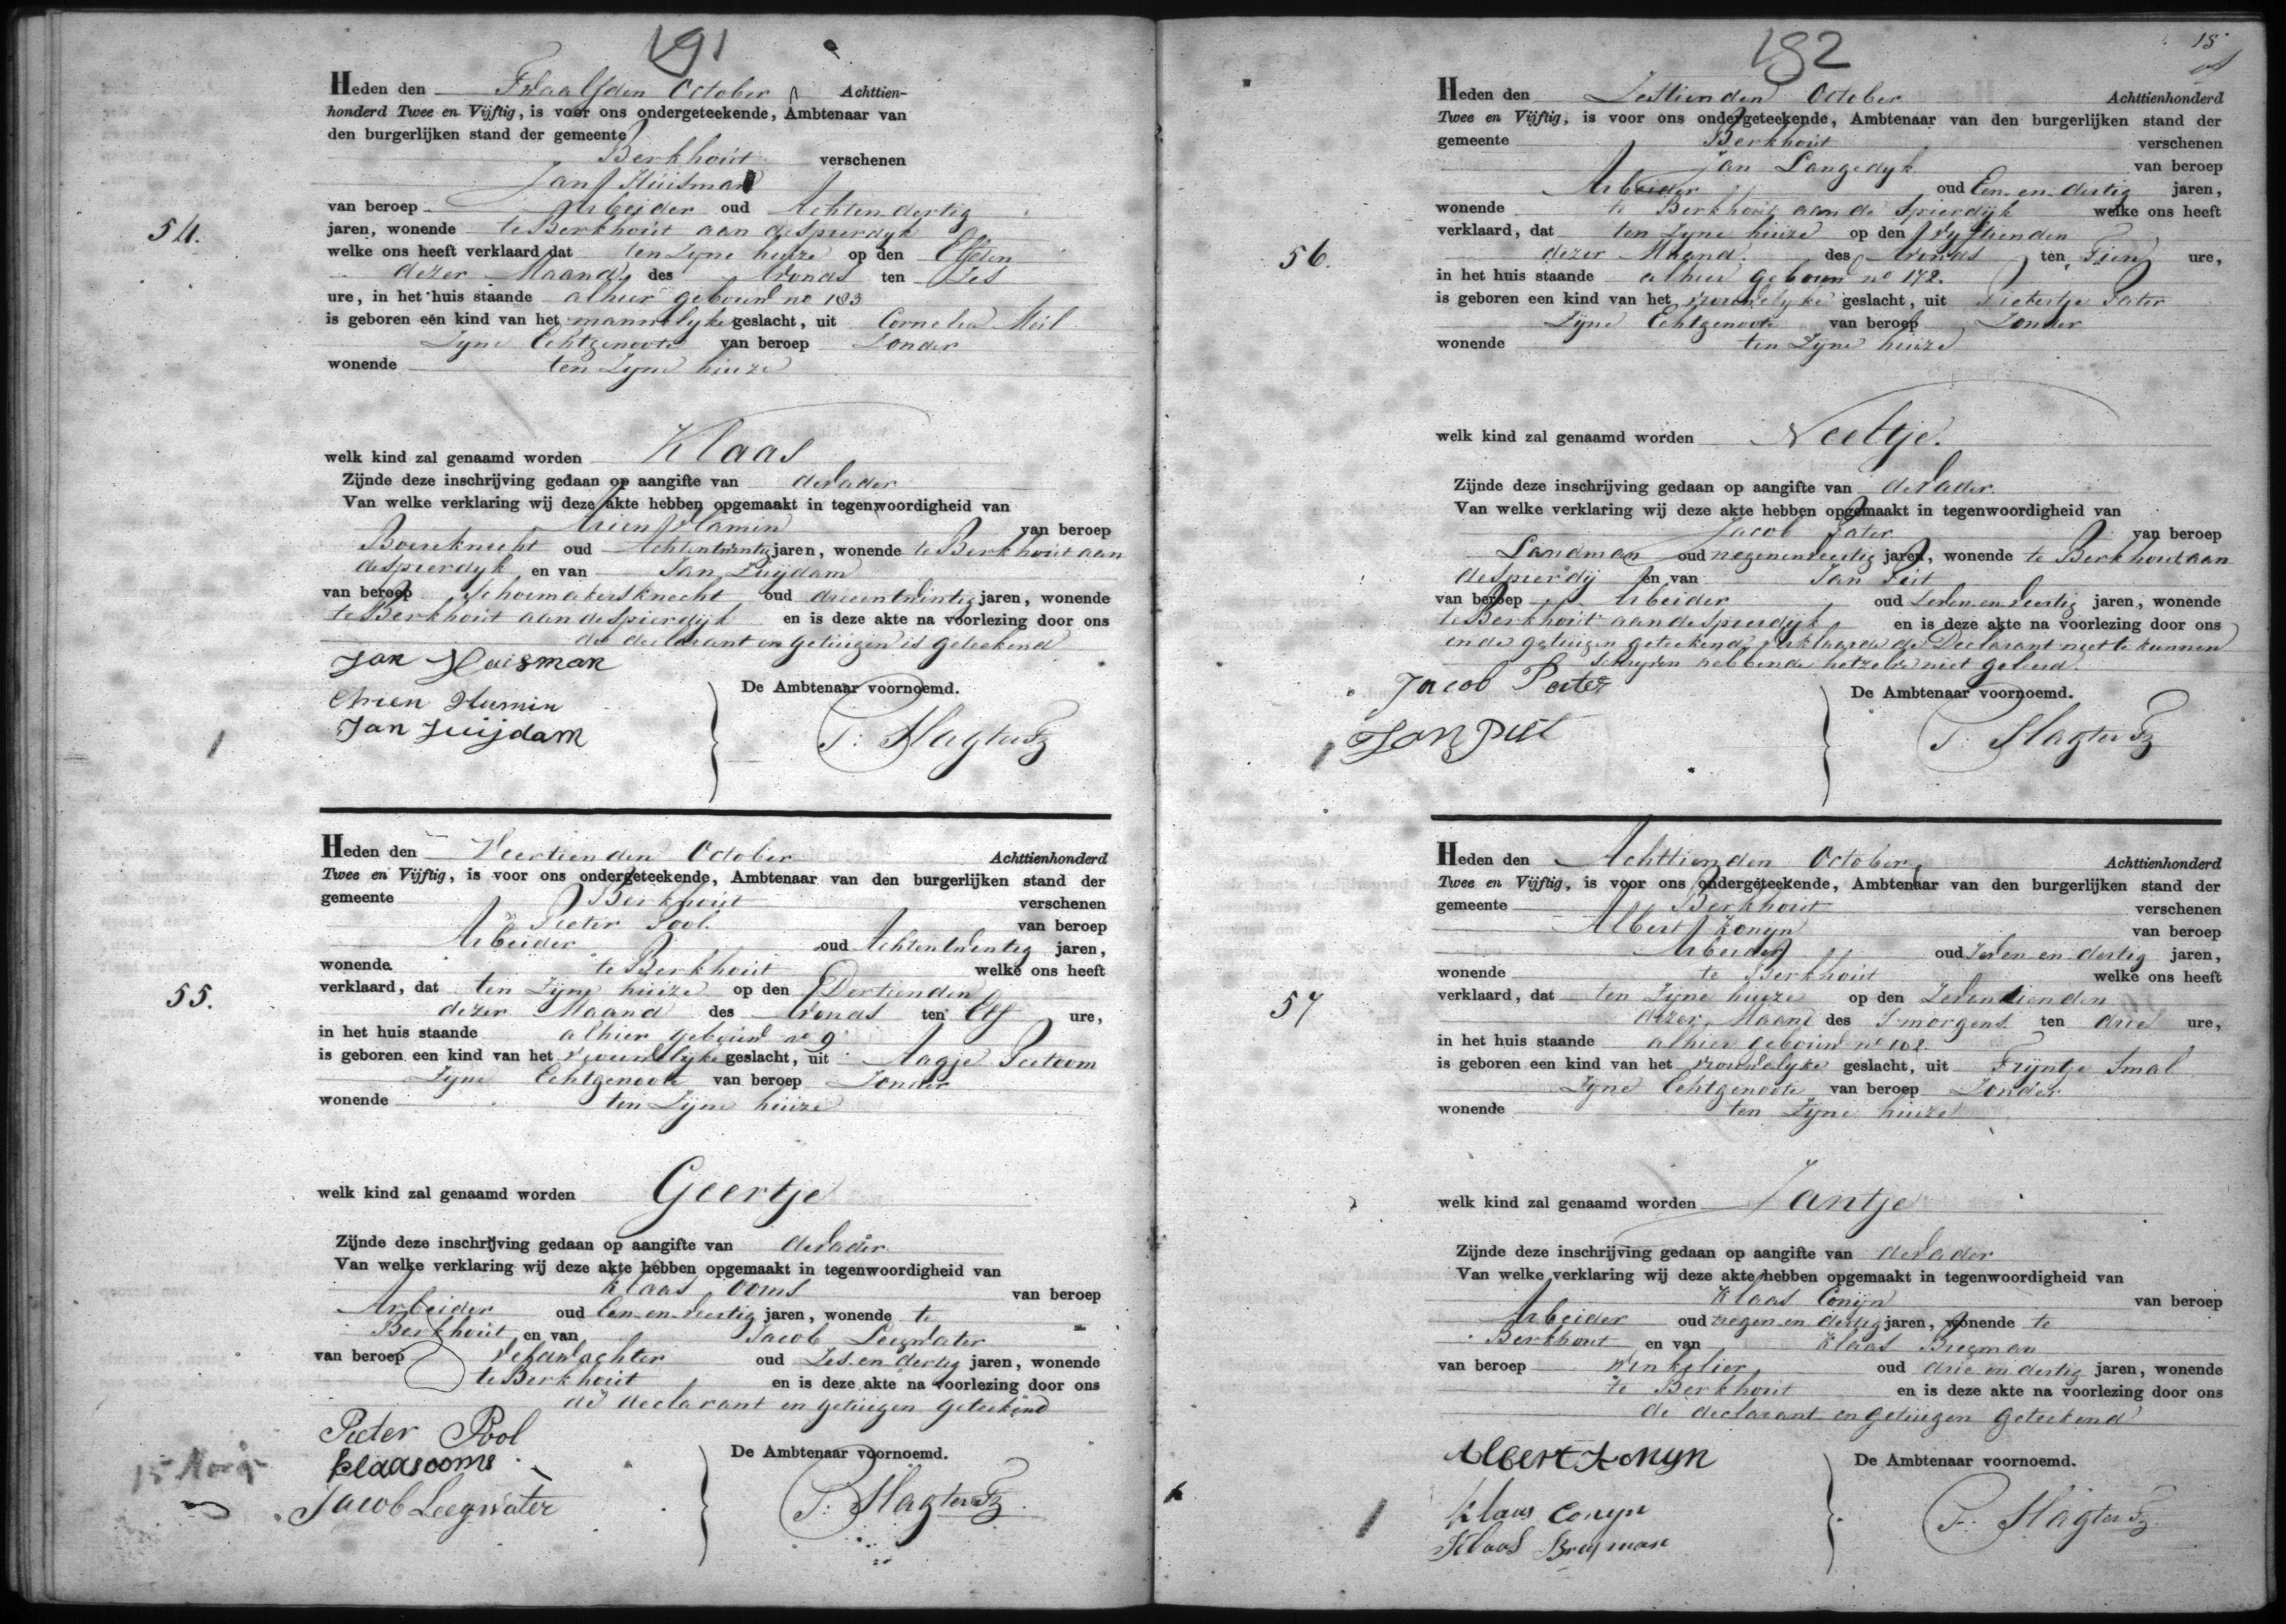 191
Heden den Twaalfden October Achttien-
honderd Twee en Vijftig, is voor ons ondergeteekende, Ambtenaar van
den burgerlijken stand der gemeente
Berkhout verschenen
Jan Huisman
van beroep Arbeider oud Achtendertig
jaren, wonende te Berkhout aan de spierdyk
welke ons heeft verklaard dat ten zyne huize op den Elfden
dezer Maand des Avonds ten Zes
ure, in het huis staande alhier gebouwd no 183
is geboren een kind van het mannelyke geslacht, uit Cornelia Mul
Zyne Echtgenoote van beroep Zonder
wonende ten Zyne huize
54.
welk kind zal genaamd worden Klaas
Zijnde deze inschrijving gedaan op aangifte van de Vader
Van welke verklaring wij deze akte hebben opgemaakt in tegenwoordigheid van
Arien Flamin van beroep
Boereknecht oud Achtentwintig jaren, wonende te Berkhout aan
de spierdyk en van Jan Zuijdam
van beroep Schoemakersknecht oud drieentwintig jaren, wonende
te Berkhout aan de spierdyk en is deze akte na voorlezing door ons
de declarant en getuigen is geteekend
Jan Huisman
Arien Flamin
Jan Zuijdam
De Ambtenaar voornoemd.
P. Slagter Fz
Heden den Veertienden October Achttienhonderd
Twee en Vijftig, is voor ons ondergeteekende, Ambtenaar van den burgerlijken stand der
gemeente Berkhout verschenen
Pieter Pool van beroep
Arbeider oud Achtentwintig jaren,
wonende te Berkhout welke ons heeft
verklaard, dat ten Zyne huize op den Dertienden
dezer Maand des Avonds ten Elf ure,
in het huis staande alhier gebouwd no 9
is geboren een kind van het vrouwelyke geslacht, uit Aagje Peetoom
Zyne Echtgenoote van beroep Zonder
wonende ten Zyne huize
55.
welk kind zal genaamd worden Geertje
Zijnde deze inschrijving gedaan op aangifte van de Vader
Van welke verklaring wij deze akte hebben opgemaakt in tegenwoordigheid van
Klaas Ooms van beroep
Arbeider oud Een en veertig jaren, wonende te
Berkhout en van Jacob Leegwater
van beroep Veldwachter oud Zes en dertig jaren, wonende
te Berkhout en is deze akte na voorlezing door ons
de declarant en getuigen geteekend
Pieter Pool
Klaas ooms
Jacob Leegwater
De Ambtenaar voornoemd.
P. Slagter Fz
192
15
Heden den Zestienden October Achttienhonderd
Twee en Vijftig, is voor ons ondergeteekende, Ambtenaar van den burgerlijken stand der
gemeente Berkhout verschenen
Jan Langedyk van beroep
Arbeider oud Een en dertig jaren,
wonende te Berkhout aan de spierdyk welke ons heeft
verklaard, dat ten Zyne huize op den Vyftienden
dezer Maand des Avonds ten Tien ure,
in het huis staande alhier gebouwd no 172.
is geboren een kind van het vrouwelyke geslacht, uit Pietertje Pater
Zyne Echtgenoote van beroep Zonder
wonende ten Zyne huize
56.
welk kind zal genaamd worden Neeltje.
Zijnde deze inschrijving gedaan op aangifte van de Vader
Van welke verklaring wij deze akte hebben opgemaakt in tegenwoordigheid van
Jacob Pater van beroep
Landman oud negenenveertig jaren, wonende te Berkhout aan
de spierdij en van Jan Pit
van beroep Arbeider oud Zeven en veertig jaren, wonende
te Berkhout aan de spierdyk en is deze akte na voorlezing door ons
en de getuigen geteekend, verklaarde de Declarant niet te kunnen
Schryven hebbende hetzelve niet geleerd.
Jacob Pater
Jan Pit
De Ambtenaar voornoemd.
P. Slagter Fz
Heden den Achttienden October Achttienhonderd
Twee en Vijftig, is voor ons ondergeteekende, Ambtenaar van den burgerlijken stand der
gemeente Berkhout verschenen
Albert Konyn van beroep
Arbeider oud Zeven en dertig jaren,
wonende te Berkhout welke ons heeft
verklaard, dat ten Zyne huize op den Zeventienden
dezer Maand des S'morgens ten drie ure,
in het huis staande alhier gebouwd no 102.
is geboren een kind van het vrouwelyke geslacht, uit Tryntje Smal
Zyne Echtgenoote van beroep Zonder
wonende ten Zyne huize
57
welk kind zal genaamd worden Jantje
Zijnde deze inschrijving gedaan op aangifte van de Vader
Van welke verklaring wij deze akte hebben opgemaakt in tegenwoordigheid van
Klaas Conyn van beroep
Arbeider oud negen en dertig jaren, wonende te
Berkhout en van Klaas Bregman
van beroep winkelier oud drie en dertig jaren, wonende
te Berkhout en is deze akte na voorlezing door ons
de declarant en getuigen geteekend
Albert Konyn
Klaas Conyn
Klaas Bregman
De Ambtenaar voornoemd.
P. Slagter Fz